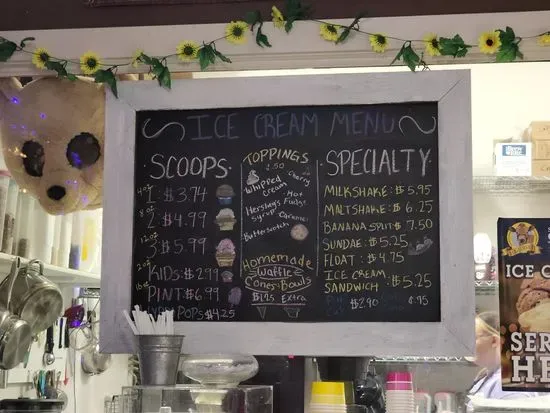 ICE CREAM MENU
SCOOPS
4oz 1: $3.74
8oz 2: $4.99
12oz 3: $5.99
2oz KIDS: $2.99
16oz PINT: $6.99
POPS: $4.25
TOPPINGS
$.50
Whipped Cream
Cherry
Hot Fudge
Hershey's Syrup
Caramel
Butterscotch
Homemade
Waffle
Cones/Bowls
$1.25 Extra
SPECIALTY
MILKSHAKE: $5.95
MALTSHAKE: $6.25
BANANA SPLIT: $7.50
SUNDAE: $5.25
FLOAT: $4.75
ICE CREAM
SANDWICH: $5.25
$2.90
ICE C
SER
HE